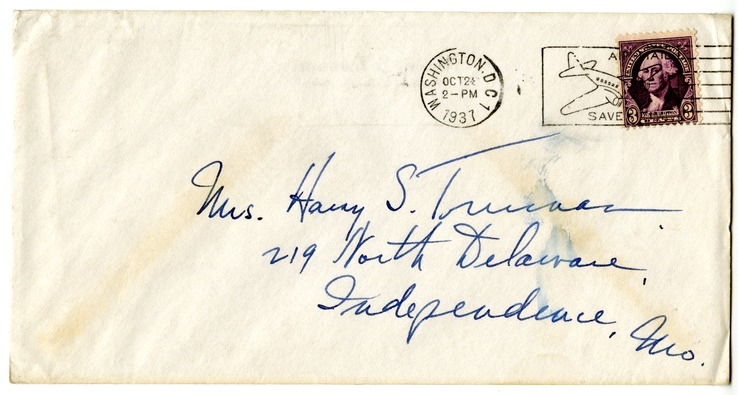 WASHINGTON, D.C. 1
OCT 24
2-PM
1937
SAVE
3 3
Mrs. Harry S. Truman
219 North Delaware,
Independence, Mo.